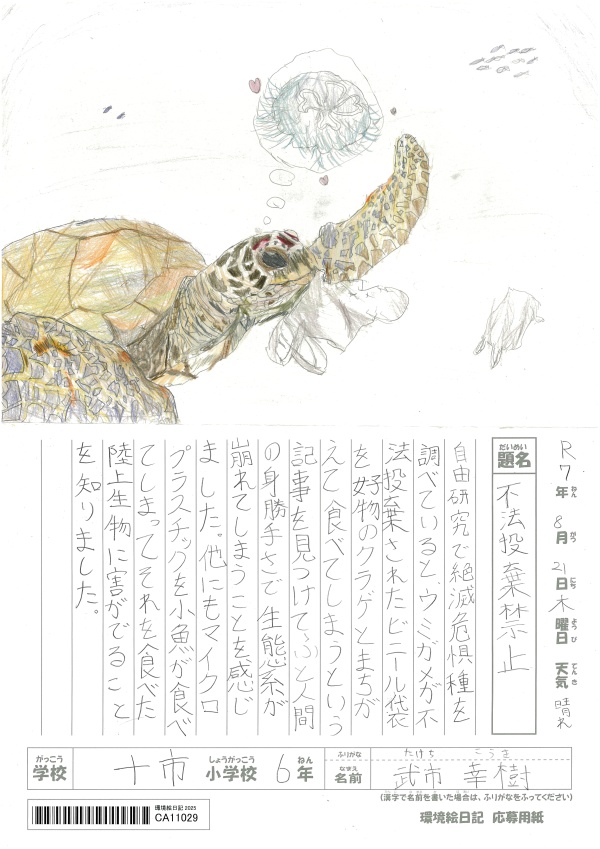 R7年 8月 21日 木曜日 天気 晴れ
ねん がつ にち ようび てんき
だいめい
題名 不法投棄禁止
自由研究で絶滅危惧種を
調べていると、ウミガメが不
法投棄されたビニール袋
を好物のクラゲとまちが
えて食べてしまうという
記事を見つけて、ふと人間
の身勝手さで生態系が
崩れてしまうことを感じ
ました。他にもマイクロ
プラスチックを小魚が食べ
てしまってそれを食べた
陸上生物に害がでること
を知りました。
がっこう しょうがっこう ねん
学校 十市 小学校 6年
ふりがな たけち こうき
なまえ
名前 武市 幸樹
(漢字で名前を書いた場合は、ふりがなをふってください)
環境絵日記 2025
CA11029
環境絵日記 応募用紙